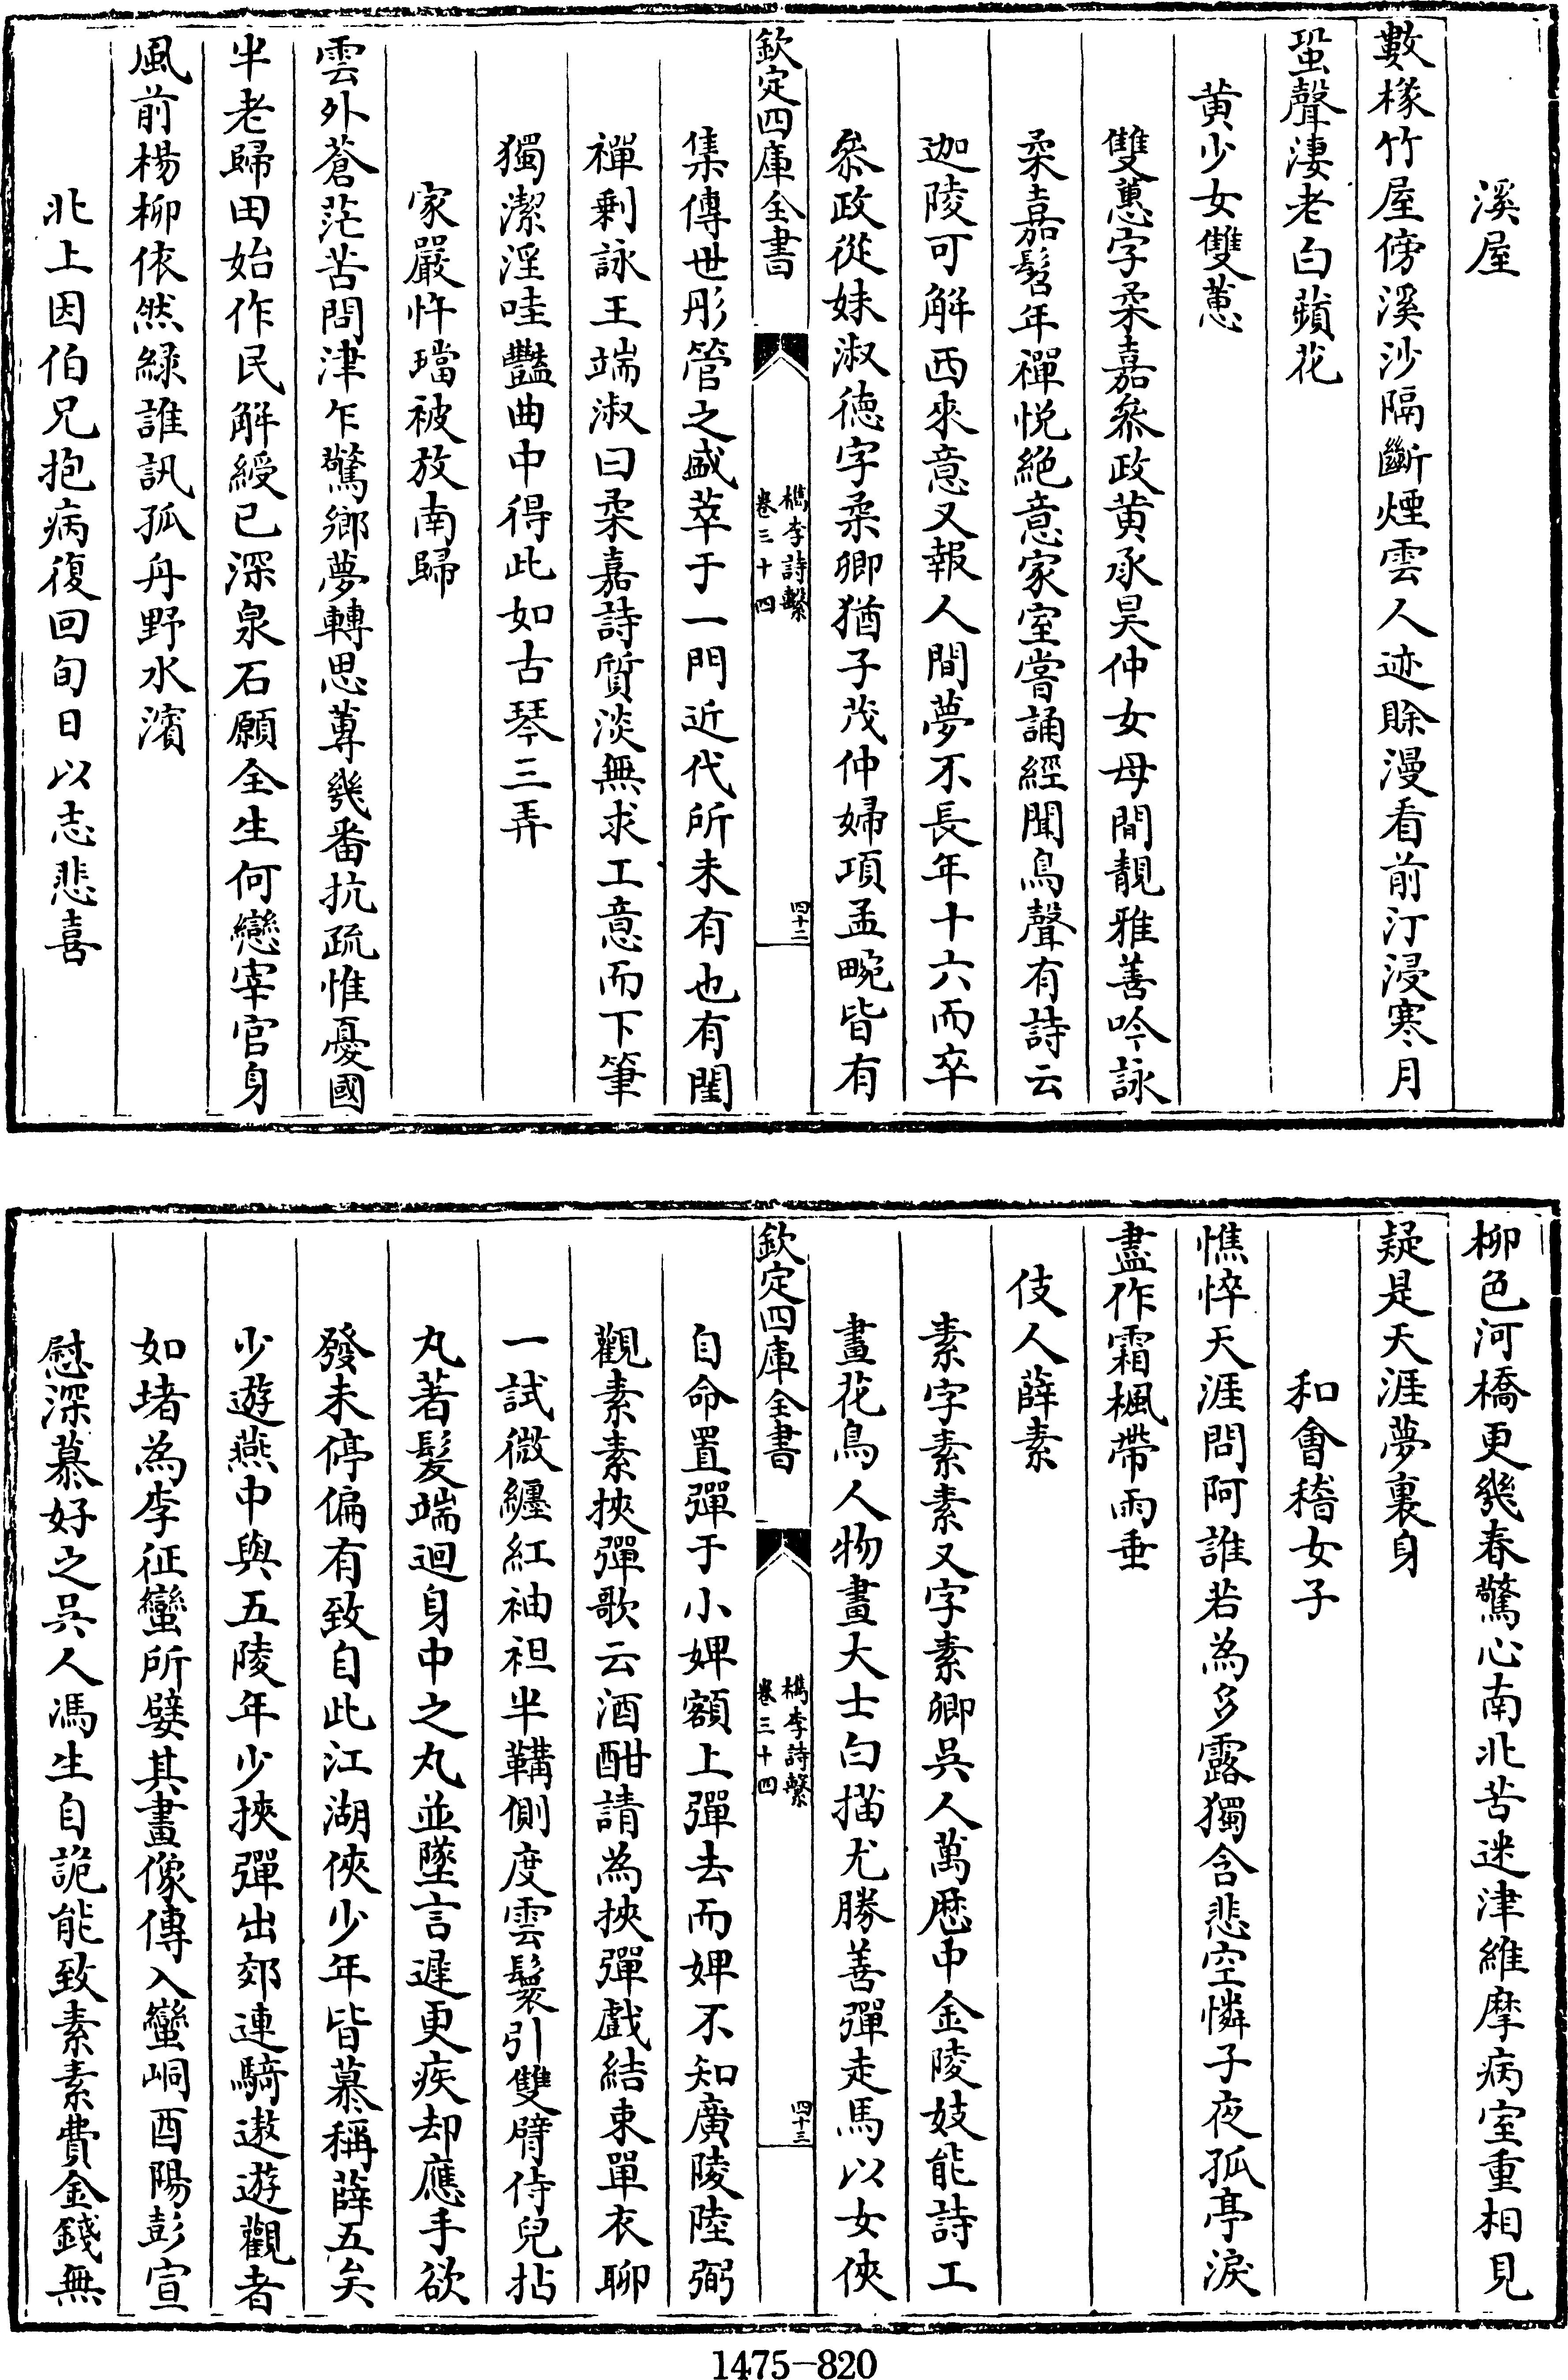 溪屋
數椽竹屋傍溪沙隔斷煙雲人迹賖漫看前汀浸寒月
蛩聲淒老白蘋花
黄少女雙蕙
雙蕙字柔嘉叅政黄承昊仲女母間靚雅善吟詠
柔嘉髫年禪悦絶意家室嘗誦經聞鳥聲有詩云
迦陵可解西來意又報人間夢不長年十六而卒
叅政從妹淑德字柔卿猶子茂仲婦項孟畹皆有
欽定四庫全書
檇李詩繫
卷三十四
四十二
集傳世彤管之盛萃于一門近代所未有也有閨
禪剩詠王端淑曰柔嘉詩質淡無求工意而下筆
獨潔淫哇豔曲中得此如古琴三弄
家嚴忤璫被放南歸
雲外蒼茫苦問津乍驚鄉夢轉思蓴幾番抗疏惟憂國
半老歸田始作民解綬已深泉石願全生何戀宰官身
風前楊柳依然綠誰訊孤舟野水濱
北上因伯兄抱病復回旬日以志悲喜
柳色河橋更幾春驚心南北苦迷津維摩病室重相見
疑是天涯夢裏身
和會稽女子
憔悴天涯問阿誰若為多露獨含悲空憐子夜孤亭淚
盡作霜楓帶雨垂
伎人薛素
素字素素又字素卿吳人萬厯中金陵妓能詩工
畫花鳥人物畫大士白描尤勝善彈走馬以女俠
欽定四庫全書
檇李詩繫
卷三十四
四十三
自命置彈于小婢額上彈去而婢不知廣陵陸弼
觀素素挾彈歌云酒酣請為挾彈戲結束單衣聊
一試微纏紅袖袒半韝側度雲鬟引雙臂侍兒拈
丸著髪端迴身中之丸並墜言遲更疾却應手欲
發未停偏有致自此江湖俠少年皆慕稱薛五矣
少遊燕中與五陵年少挾彈出郊連騎遨遊觀者
如堵為李征蠻所嬖其畫像傳入蠻峒酉陽彭宣
慰深慕好之吳人馮生自詭能致素素費金錢無
1475-820